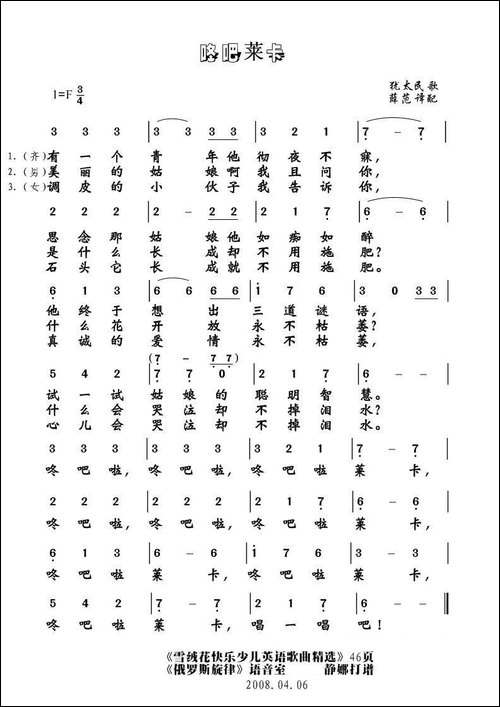 咚吧莱卡
1=F 3/4
犹太民歌
薛范译配
3 3 3 | 3 – 3 3 | 3 2 1 | 7 – 7 |
1. (齐)有一个青年他彻夜不寐,
2. (男)美丽的姑娘啊我且问你,
3. (女)调皮的小伙子我告诉你,
2 2 2 | 2 – 2 2 | 2 1 7 | 6 – 6 |
思念那姑娘他如痴如醉
是什么长成却不用施肥?
石头它长成就不用施肥。
6 1 3 | 6 – 6 6 | 1 7 6 | 3 0 3 3 |
他终于想出三道谜语,
什么花开放永不枯萎?
真诚的爱情永不枯萎,
(7 – 7 7)
5 4 2 | 7 7 0 | 2 1 7 | 6 – – |
试一试姑娘的聪明智慧。
什么会哭泣却不掉泪水?
心儿会哭泣却不掉泪水。
3 3 3 | 3 3 3 | 3 2 1 | 7 – 7 |
咚吧啦,咚吧啦,咚吧啦莱卡,
2 2 2 | 2 2 2 | 2 1 7 | 6 – 6 |
咚吧啦,咚吧啦,咚吧啦莱卡,
6 1 3 | 6 – 6 | 1 7 6 | 3 – 3 |
咚吧啦莱卡,咚吧啦莱卡,
5 4 2 | 7 – 7 | 2 1 7 | 6 – –
咚吧啦莱卡,唱一唱吧!
《雪绒花快乐少儿英语歌曲精选》46页
《俄罗斯旋律》语音室 静娜打谱
2008.04.06